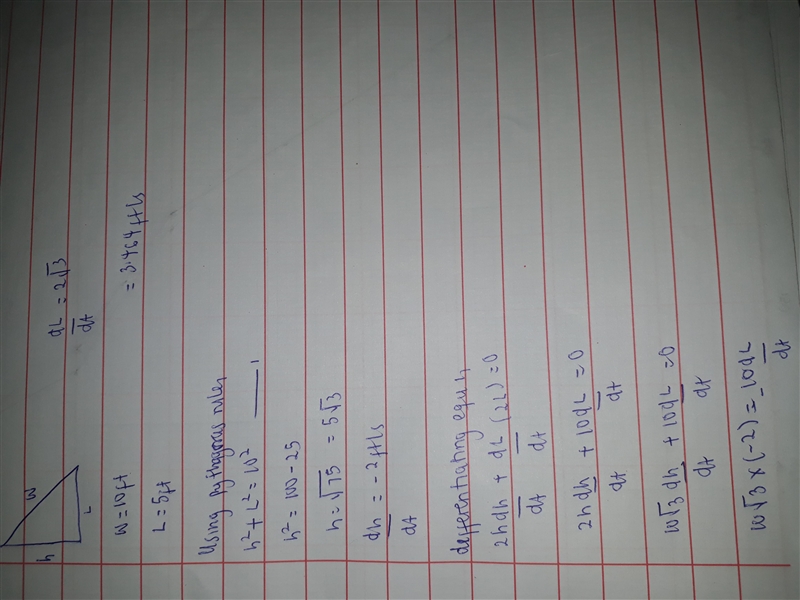 h
W
L
W = 10ft
L = 5ft
Using pythagorus rules
h² + L² = 10² ___ 1
h² = 100 - 25
h = √75 = 5√3
dh/dt = -2ft/s
differentiating equn 1,
2h dh/dt + dL/dt (2L) = 0
2h dh/dt + 10 dL/dt = 0
10√3 dh/dt + 10 dL/dt = 0
10√3 × (-2) = -10 dL/dt
dL/dt = 2√3
= 3.464 ft/s